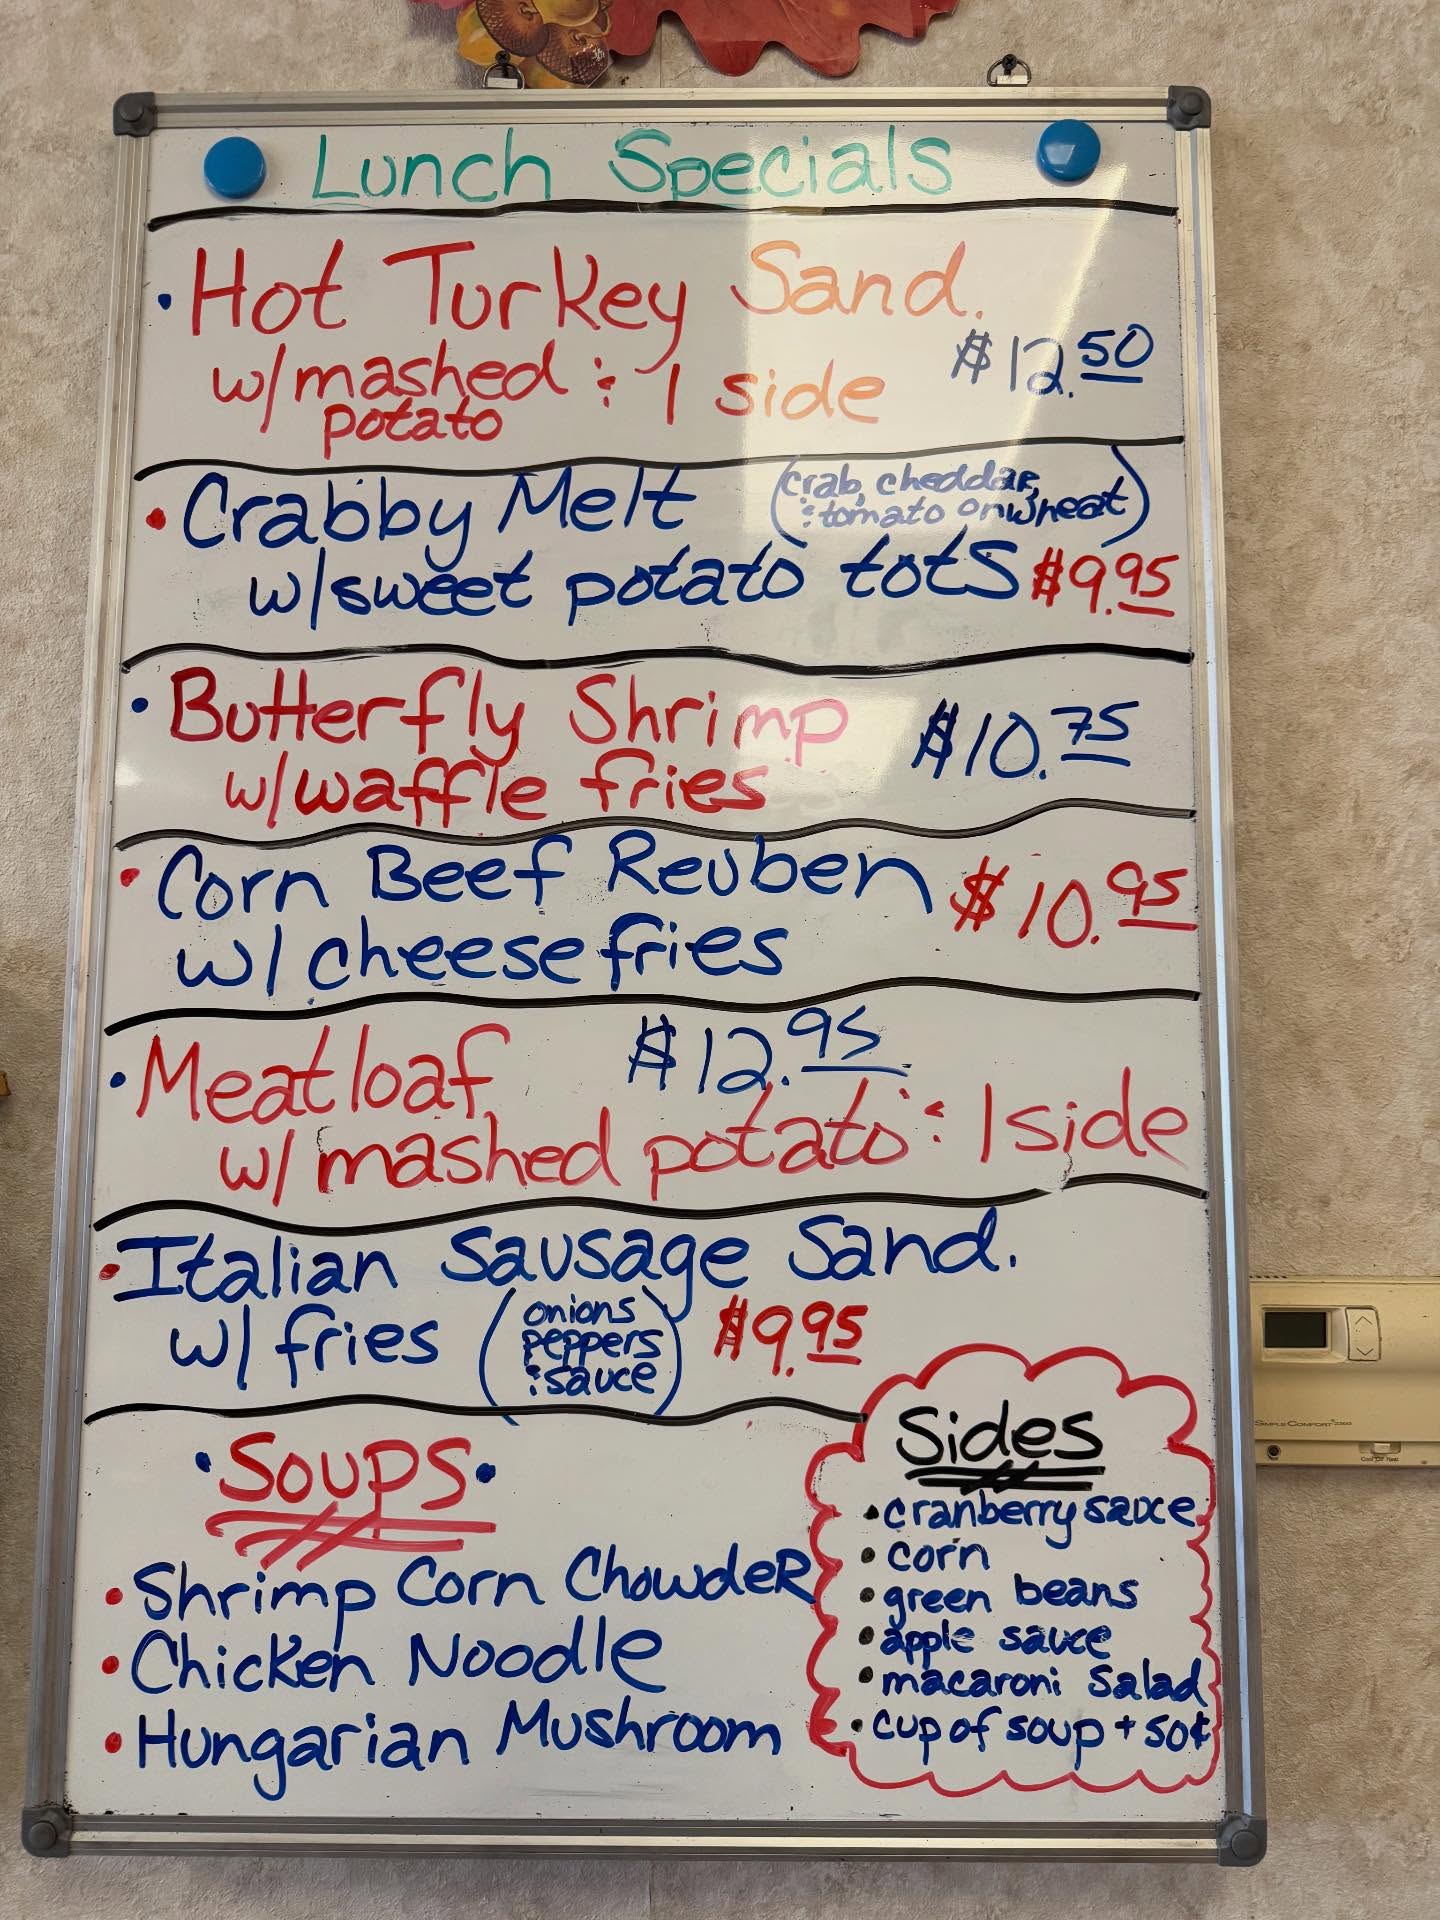 Lunch Specials
• Hot Turkey Sand.
w/mashed potato : 1 side $12.50
• Crabby Melt (crab, cheddar,
: tomato on wheat)
w/sweet potato tots $9.95
• Butterfly Shrimp $10.75
w/waffle fries
• Corn Beef Reuben $10.95
w/ cheese fries
• Meatloaf $12.95
w/ mashed potato : 1 side
• Italian Sausage Sand.
w/ fries (onions
peppers
: sauce) $9.95
• Soups •
• Shrimp Corn Chowder
• Chicken Noodle
• Hungarian Mushroom
Sides
• cranberry sauce
• corn
• green beans
• apple sauce
• macaroni salad
• cup of soup + 50¢